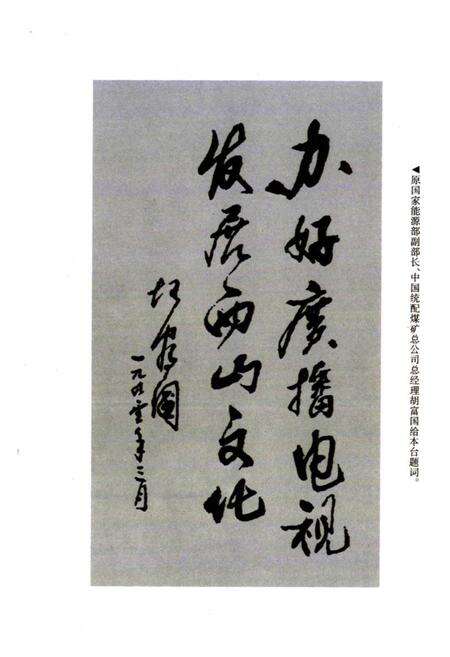 ◀原国家能源部副部长、中国统配煤矿总公司总经理胡富国给本台题词。
办好廣播电视
发展西山文化
胡富国
一九九零年三月